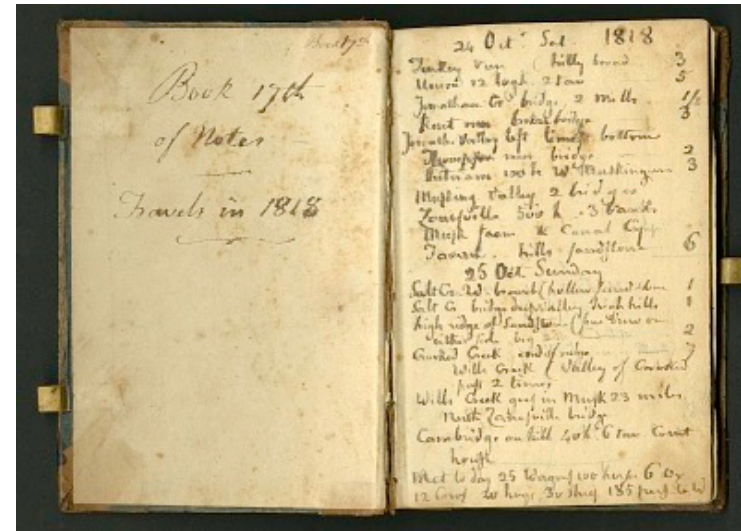 Book 17th
of Notes
Travels in 1818
24 Oct. Sat. 1818
Turkey Run (hilly broad 3
12 2 5
Jonathan Cr bridge 2 Mills 1/2
Kent run bridge 3
Valley left bottom
run bridge 2
Putnam 100 h W Muskingum 3
Valley 2 bridges
Zanesville 500 h . 3 banks
Musk & Canal
Tavern . hills sandstone 6
25 Oct Sunday
Salt Cr. W. branch (hollow 1
Salt Cr bridge deep valley high hills 1
high ridge of Sandstone (fine view on
either side 2
Crooked Creek end of ridge 7
Wills Creek ( Valley of Crooked
pass 2 times
Wills Creek goes in Musk 23 miles
North Zanesville bridge
Cambridge on hill 40 h. 6 Court
house
Met to day 25 Wagons 100 6
12 Cows 20 hogs, 30 185